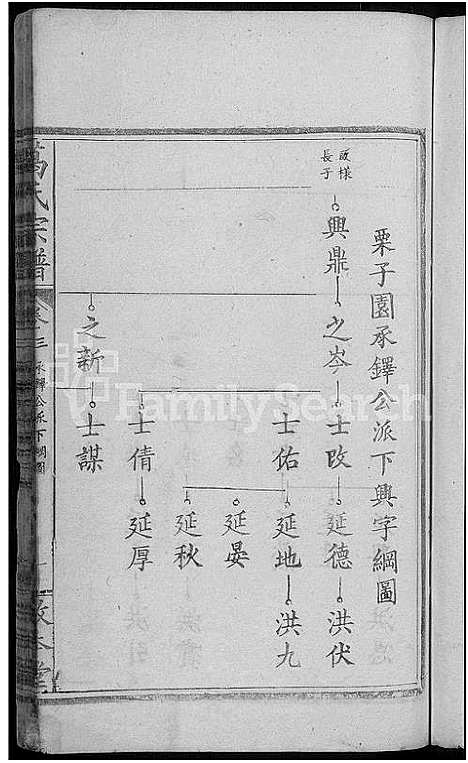 栗子園承鐸公派下興字綱圖
政樣長子
興鼎 之岑 士改 延德 洪伏
士佑 延地 洪九
延晏
延秋
士倩 延厚
之新 士謀
萬氏宗譜
承鐸公派下綱圖
敦本堂
FamilySearch